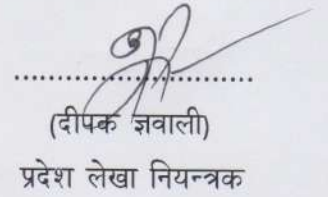 (दीपक ज्ञवाली)
प्रदेश लेखा नियन्त्रक